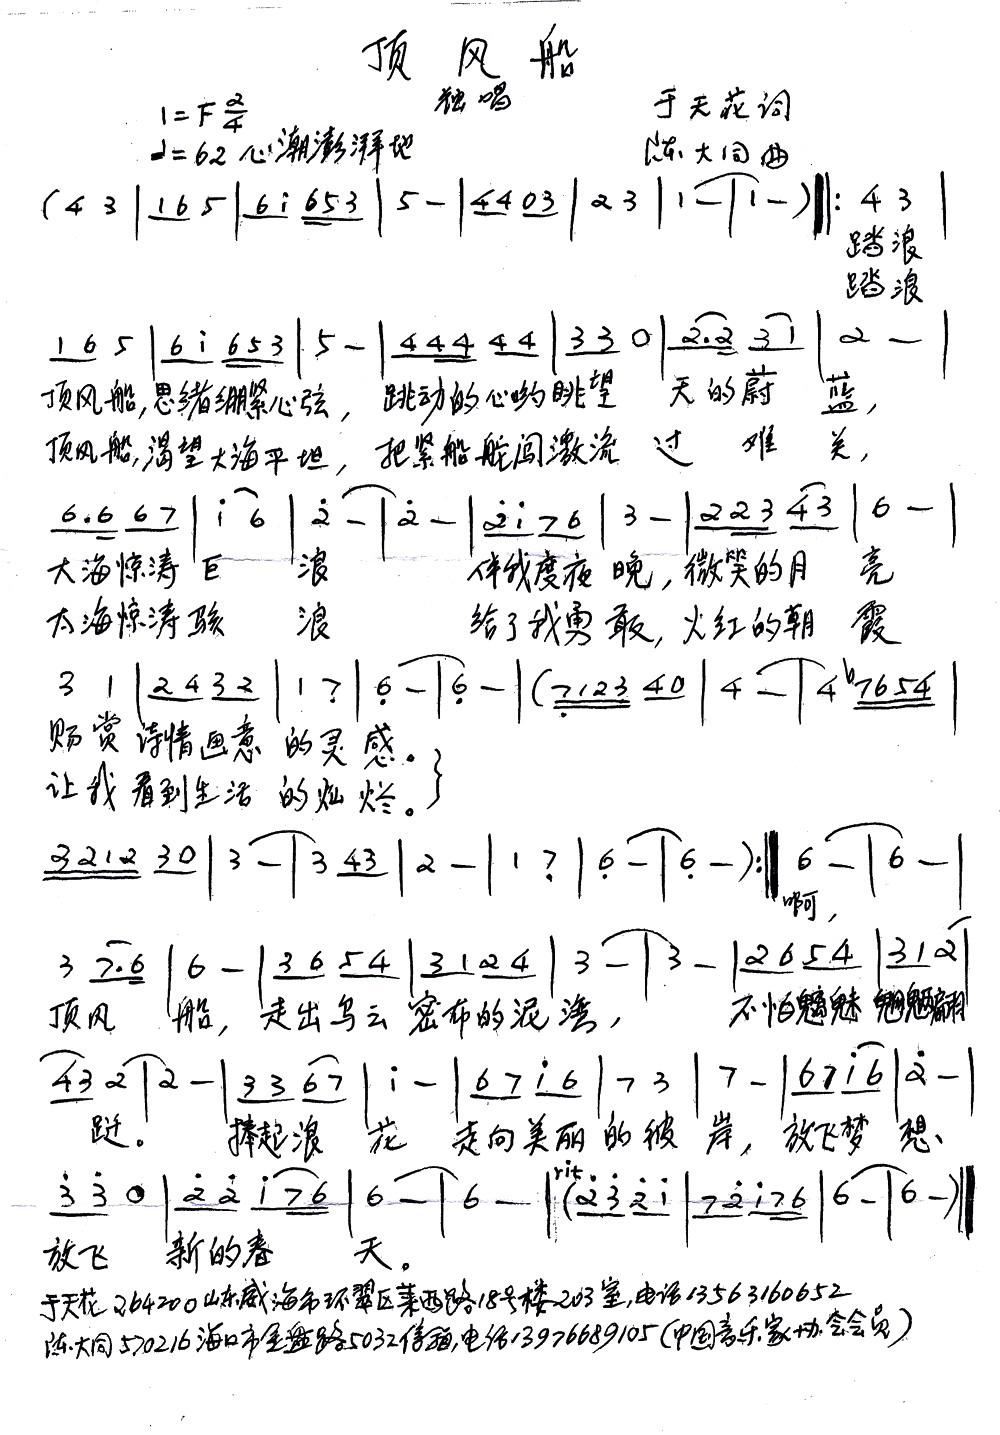 顶风船
独唱
1=F 2/4
于天花词
♩=62 心潮澎湃地
陈大同曲
(4 3 | 1 6 5 | 6 i 6 5 3 | 5 - | 4 4 0 3 | 2 3 | 1 - | 1 - ) ‖: 4 3 |
踏浪
踏浪
1 6 5 | 6 i 6 5 3 | 5 - | 4 4 4 4 4 | 3 3 0 | 2. 2 3 1 | 2 - |
顶风船,思绪绷紧心弦, 跳动的心哟眺望 天的蔚 蓝,
顶风船,渴望大海平坦, 把紧船舵闯激流 过 难 关,
6. 6 6 7 | i 6 | 2̇ - | 2̇ - | 2̇ i 7 6 | 3 - | 2 2 3 4 3 | 6 - |
大海惊涛 巨 浪 伴我度夜 晚,微笑的月 亮
大海惊涛 骇 浪 给了我勇 敢,火红的朝 霞
3 1 | 2 4 3 2 | 1 7̣ | 6̣ - | 6̣ - | (7̣ 1 2 3 4 0 | 4 - | 4 ♭7 6 5 4 |
赐赏 诗情画意 的灵感。
让我 看到生活 的灿烂。}
3 2 1 2 3 0 | 3 - | 3 4 3 | 2 - | 1 7̣ | 6̣ - | 6̣ - ) :‖ 6 - | 6 - |
啊,
3 7. 6 | 6 - | 3 6 5 4 | 3 1 2 4 | 3 - | 3 - | 2 6 5 4 | 3 1 2 |
顶风 船, 走出乌云 密布的泥湾, 不怕魑魅 魍魉翩
4 3 2 | 2 - | 3 3 6 7 | i - | 6 7 i 6 | 7 3 | 7 - | 6 7 i 6 | 2̇ - |
跹。 捧起浪 花 走向美丽 的彼 岸, 放飞梦 想、
3̇ 3̇ 0 | 2̇ 2̇ i 7 6 | 6 - | 6 - | rit (2̇ 3̇ 2̇ i | 7 2̇ i 7 6 | 6 - | 6 - ) ‖
放飞 新的春 天。
于天花 264200 山东威海市环翠区莱西路18号楼203室,电话13563160652
陈大同 570216 海口市金盘路5032信箱,电话13976689105(中国音乐家协会会员)